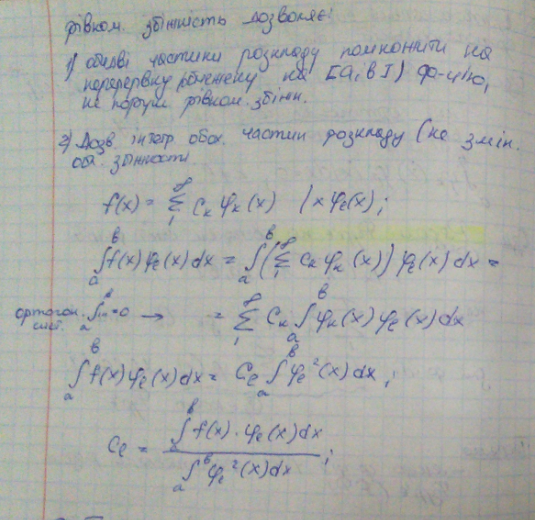 рівном. збіжність дозволяє:
1) обидві частини розкладу помножити на
неперервну (обмежену на [a, b]) ф-цію,
не поруш. рівном. збіжн.
2) Дозв. інтегр обох. частин розкладу (не змін.
об. збіжності
f(x) = ∑₁^∞ cₖ φₖ(x) | × φₑ(x) ;
∫ₐᵇ f(x) φₑ(x) dx = ∫ₐᵇ (∑₁^∞ cₖ φₖ(x)) φₑ(x) dx =
ортогон. сист. ∫ₐᵇ = 0 → = ∑₁^∞ cₖ ∫ₐᵇ φₖ(x) φₑ(x) dx
∫ₐᵇ f(x) φₑ(x) dx = cₑ ∫ₐᵇ φₑ²(x) dx ;
cₑ = ∫ₐᵇ f(x) · φₑ(x) dx / ∫ₐᵇ φₑ²(x) dx ;